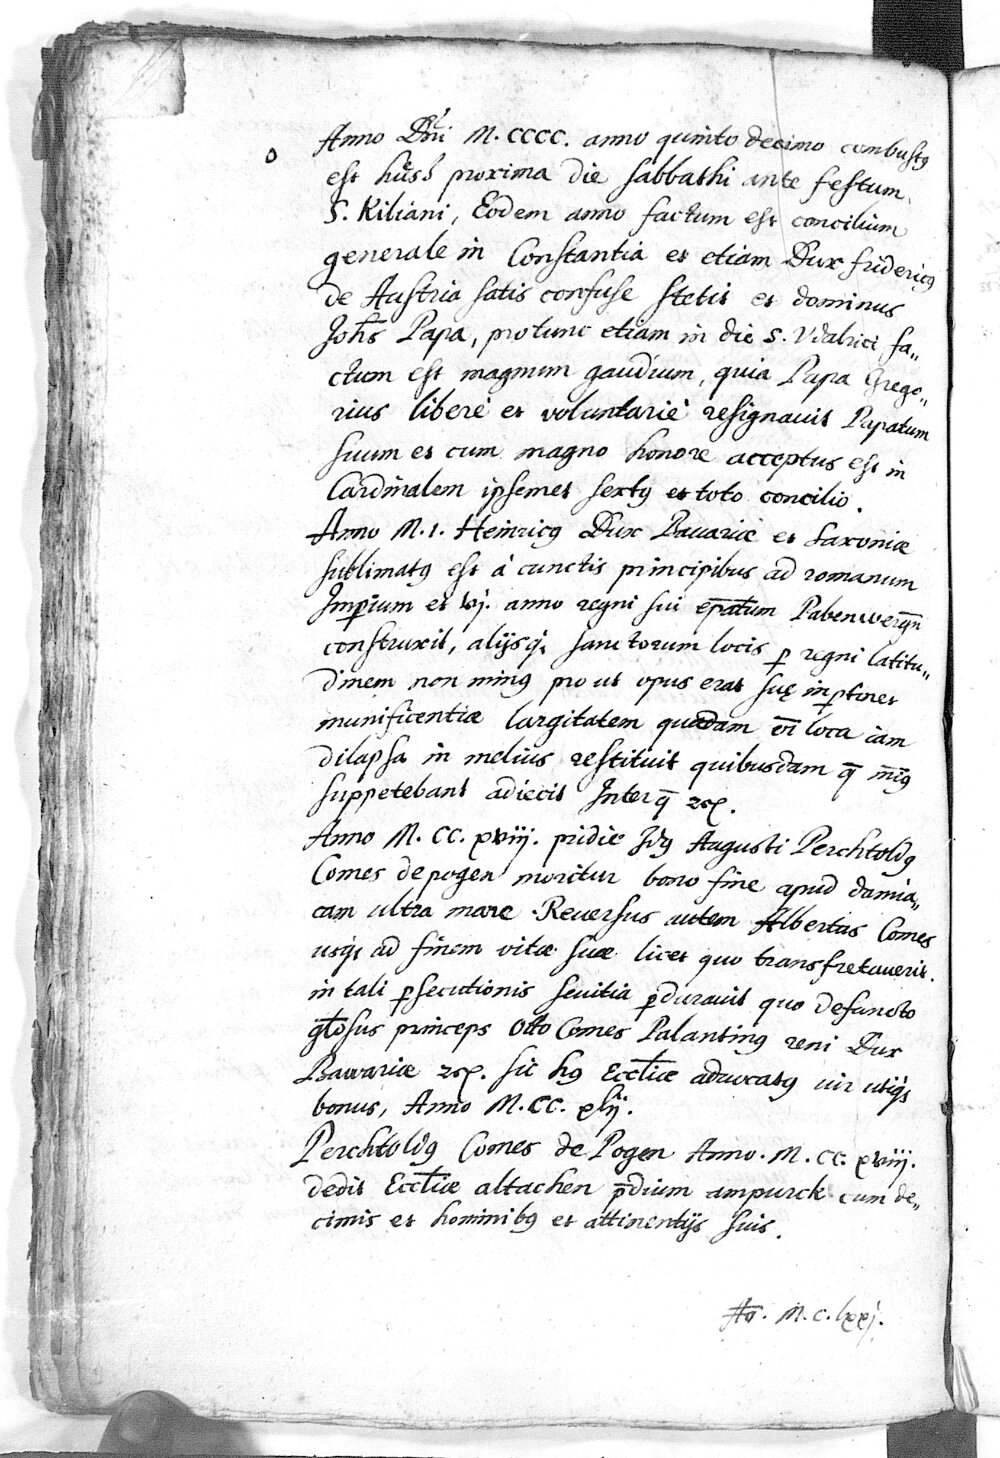 Anno Dñi M. CCCC. anno quinto decimo combustꝰ
est huss proxima die sabbathi ante festum
S. Kiliani, Eodem anno factum est concilium
generale in Constantia et etiam Dux fridericꝰ
de Austria satis confuse stetit et dominus
Johs̄ Papa, protunc etiam in die S. Vdalrici, fa„
ctum est magnum gaudium, quia Papa Grego„
rius liberè et voluntariè resignauit Papatum
suum et cum magno honore acceptus est in
Cardinalem ipsemet sextꝰ et toto concilio.
Anno M. 1. Heinricꝰ Dux Bauariæ et Saxoniæ
sublimatꝰ est à cunctis principibus ad romanum
Imꝑium et vj. anno regni sui ep̄atum Pabenwergn̄
construxit, alijsqꝫ sanctorum locis ꝑ regni latitu„
dinem non minꝰ pro ut opus erat suę inꝑtinet
munificentiæ largitatem quædam et̄ loca iam
dilapsa in melius restituit quibusdam q̄ minꝰ
suppetebant adiecit Interq̄ ꝛc.
Anno M. CC. xviij. pridie Idꝰ Augusti Perchtoldꝰ
Comes de pogen moritur bono fine apud damia„
cam ultra mare. Reuersus autem Albertus Comes
usqꝫ ad finem vitæ suæ licet quo transfretauerit.
in tali ꝑsecutionis seuitia ꝑdurauit quo defuncto
gl̄osus princeps Otto Comes Palantinꝰ reni Dux
Bawariæ ꝛc. sic hꝰ Eccl̄iæ aduocatꝰ uir utiqꝫ
bonus, Anno M. CC. xlij.
Perchtoldꝰ Comes de Pogen Anno. M. CC. xviij.
dedit Eccl̄iæ altachen p̄dium ampurck cum de„
cimis et hominibꝰ et attinentijs suis.
Aō. M. C. lxxj.